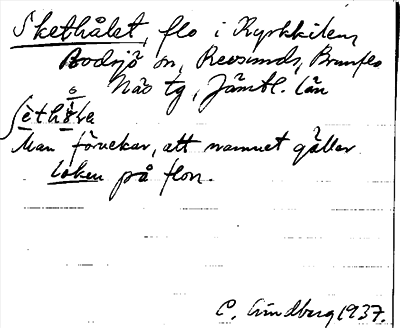 Skethålet, flo i Kyrkkilen,
Bodsjö sn, Revsunds, Brunflo
Näs tg, Jämtl. län
ʃèthɵ̀ḷe
Man förnekar, att namnet gäller
loken på flon.
C. Lindberg 1937.